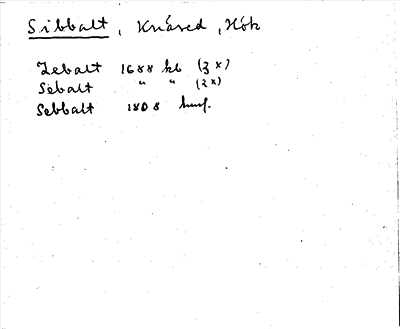 Sibbalt, Knäred, Hök
Zebalt 1688 kb (3x)
Sebalt " " (2x)
Sebbalt 1808 husf.